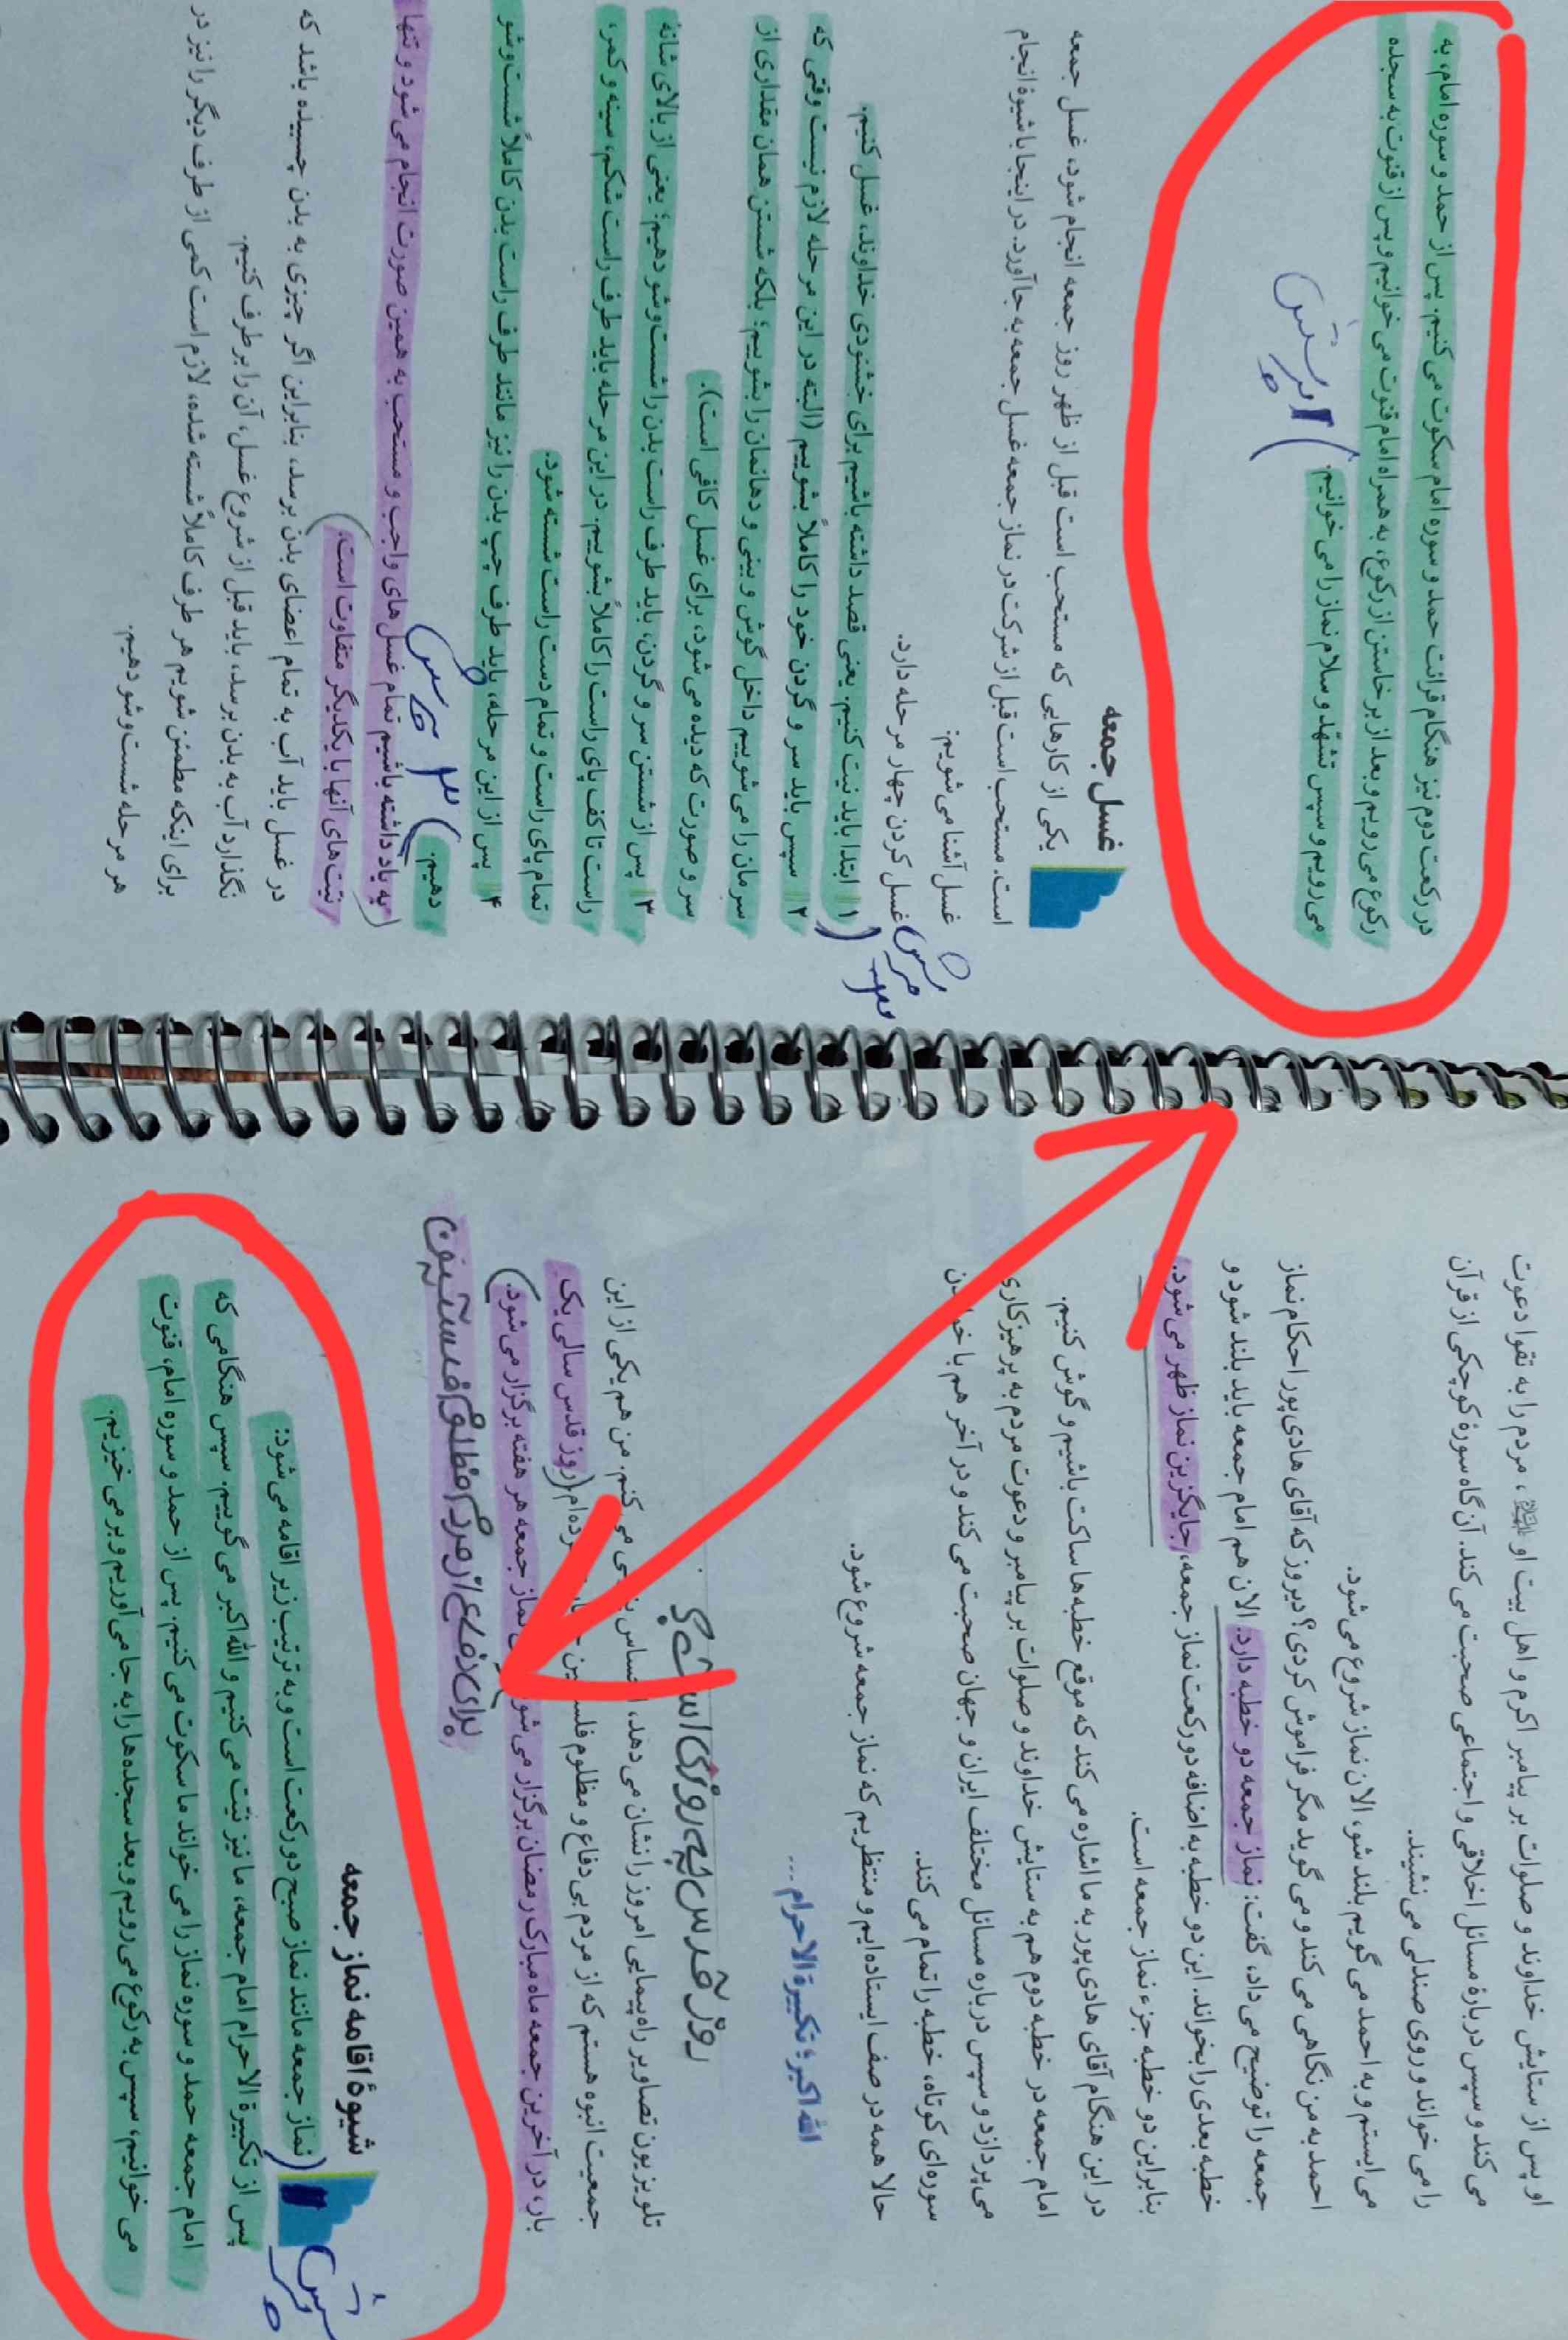 او پس از ستایش خداوند و صلوات بر پیامبر اکرم و اهل بیت او علیهم‌السلام، مردم را به تقوا دعوت
می‌کند و سپس دربارهٔ مسائل اخلاقی و اجتماعی صحبت می‌کند. آن گاه سورهٔ کوچکی از قرآن
را می‌خواند و روی صندلی می‌نشیند.
می‌ایستم و به احمد می‌گویم بلند شو، الان نماز شروع می‌شود.
احمد به من نگاهی می‌کند و می‌گوید مگر فراموش کردی؟ دیروز که آقای هادی‌پور احکام نماز
جمعه را توضیح می‌داد، گفت: نماز جمعه دو خطبه دارد. الان هم امام جمعه باید بلند شود و
خطبه بعدی را بخواند. این دو خطبه به اضافه دو رکعت نماز جمعه، جایگزین نماز ظهر می‌شود.
بنابراین دو خطبه جزء نماز جمعه است.
در این هنگام آقای هادی‌پور به ما اشاره می‌کند که موقع خطبه‌ها ساکت باشیم و گوش کنیم.
امام جمعه در خطبه دوم هم به ستایش خداوند و صلوات بر پیامبر و دعوت مردم به پرهیزکاری
می‌پردازد و سپس درباره مسائل مختلف ایران و جهان صحبت می‌کند و در آخر هم با
سوره‌ای کوتاه، خطبه را تمام می‌کند.
حالا همه در صف ایستاده‌ایم و منتظریم که نماز جمعه شروع شود.
الله اکبر؛ تکبیرة الاحرام ...
روز قدس چه روزی است؟
تلویزیون تصاویر راه‌پیمایی امروز را نشان می‌دهد، می‌کنم. من هم یکی از این
جمعیت انبوه هستم که از مردم بی دفاع و مظلوم (روز قدس سالی یک
بار، در آخرین جمعه ماه مبارک رمضان برگزار می‌شود نماز جمعه هر هفته برگزار می‌شود.)
برای دفاع از مردم مظلوم فلسطین
شیوهٔ اقامه نماز جمعه
پرسش
(نماز جمعه مانند نماز صبح دو رکعت است و به ترتیب زیر اقامه می‌شود:
پس از تکبیرة الاحرام امام جمعه، ما نیز نیّت می‌کنیم و الله اکبر می‌گوییم. سپس هنگامی که
امام جمعه حمد و سوره نماز را می‌خواند ما سکوت می‌کنیم. پس از حمد و سوره امام، قنوت
می‌خوانیم، سپس به رکوع می‌رویم و بعد سجده‌ها را به جا می‌آوریم و بر می‌خیزیم.
در رکعت دوم نیز هنگام قرائت حمد و سوره امام سکوت می‌کنیم. پس از حمد و سوره امام، به
رکوع می‌رویم و بعد از برخاستن از رکوع، به همراه امام قنوت می‌خوانیم و پس از قنوت به سجده
می‌رویم و سپس تشهّد و سلام نماز را می‌خوانیم.) پرسش
غسل جمعه
یکی از کارهایی که مستحب است قبل از ظهر روز جمعه انجام شود، غسل جمعه
است. مستحب است قبل از شرکت در نماز جمعه غسل جمعه به جا آورد. در اینجا با شیوهٔ انجام
غسل آشنا می‌شویم:
غسل کردن چهار مرحله دارد.
پرسش
۱ ابتدا باید نیت کنیم. یعنی قصد داشته باشیم برای خشنودی خداوند، غسل کنیم.
۲ سپس باید سر و گردن خود را کاملاً بشوییم (البته در این مرحله لازم نیست وقتی که
سرمان را می‌شوییم داخل گوش و بینی و دهانمان را بشوییم؛ بلکه شستن همان مقداری از
سر و صورت که دیده می‌شود، برای غسل کافی است).
۳ پس از شستن سر و گردن، باید طرف راست بدن را شست‌وشو دهیم؛ یعنی از بالای شانهٔ
راست تا کف پای راست را کاملاً بشوییم. در این مرحله باید طرف راست شکم، سینه و کمر،
تمام پای راست و تمام دست راست شسته شود.
۴ پس از این مرحله، باید طرف چپ بدن را نیز مانند طرف راست بدن کاملاً شست‌وشو
دهیم.) ۳ پرسش
(به یاد داشته باشیم تمام غسل‌های واجب و مستحب به همین صورت انجام می‌شود و تنها
نیّت‌های آنها با یکدیگر متفاوت است.)
در غسل باید آب به تمام اعضای بدن برسد، بنابراین اگر چیزی به بدن چسبیده باشد که
نگذارد آب به بدن برسد، باید قبل از شروع غسل، آن را برطرف کنیم.
برای اینکه مطمئن شویم هر طرف کاملاً شسته شده، لازم است کمی از طرف دیگر را نیز در
هر مرحله شست‌وشو دهیم.